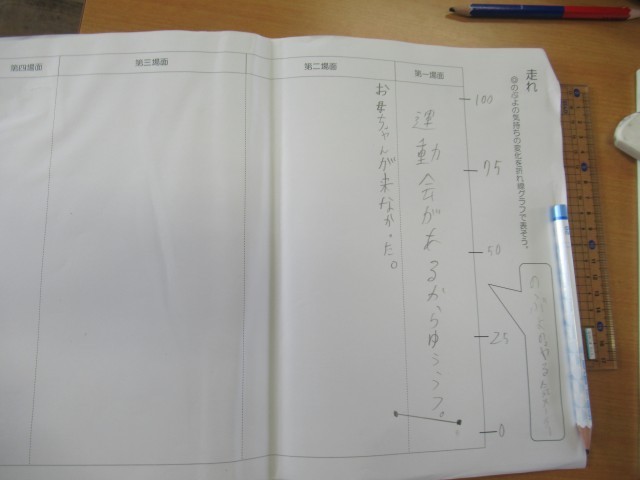 走れ
◎のぶよの気持ちの変化を折れ線グラフで表そう。
100
75
50
25
0
第一場面
運動会があるからゆううつ。
第二場面
お母ちゃんが来なかった。
第三場面
第四場面